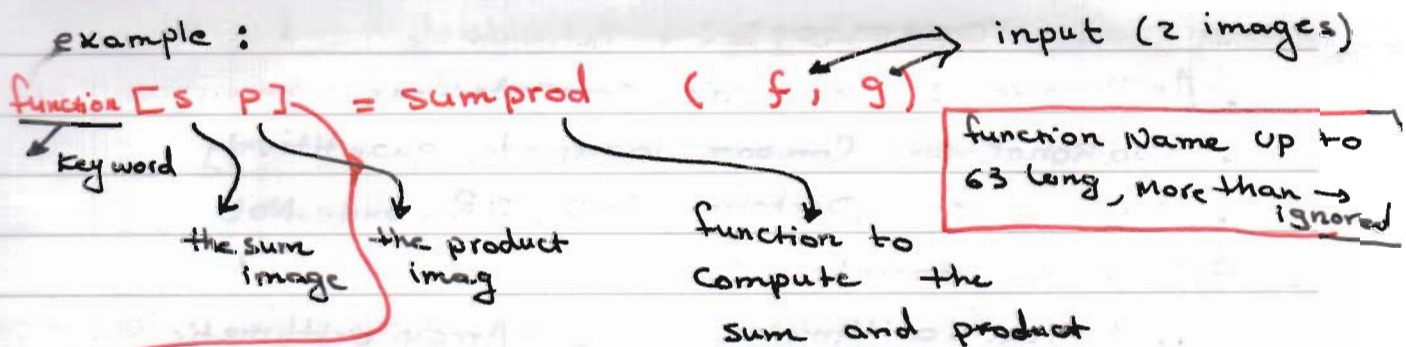 example :
input (2 images)
function [s p] = sumprod ( f, g )
keyword
the sum image
the product imag
function to
compute the
sum and product
function Name up to
63 long, more than →
ignored